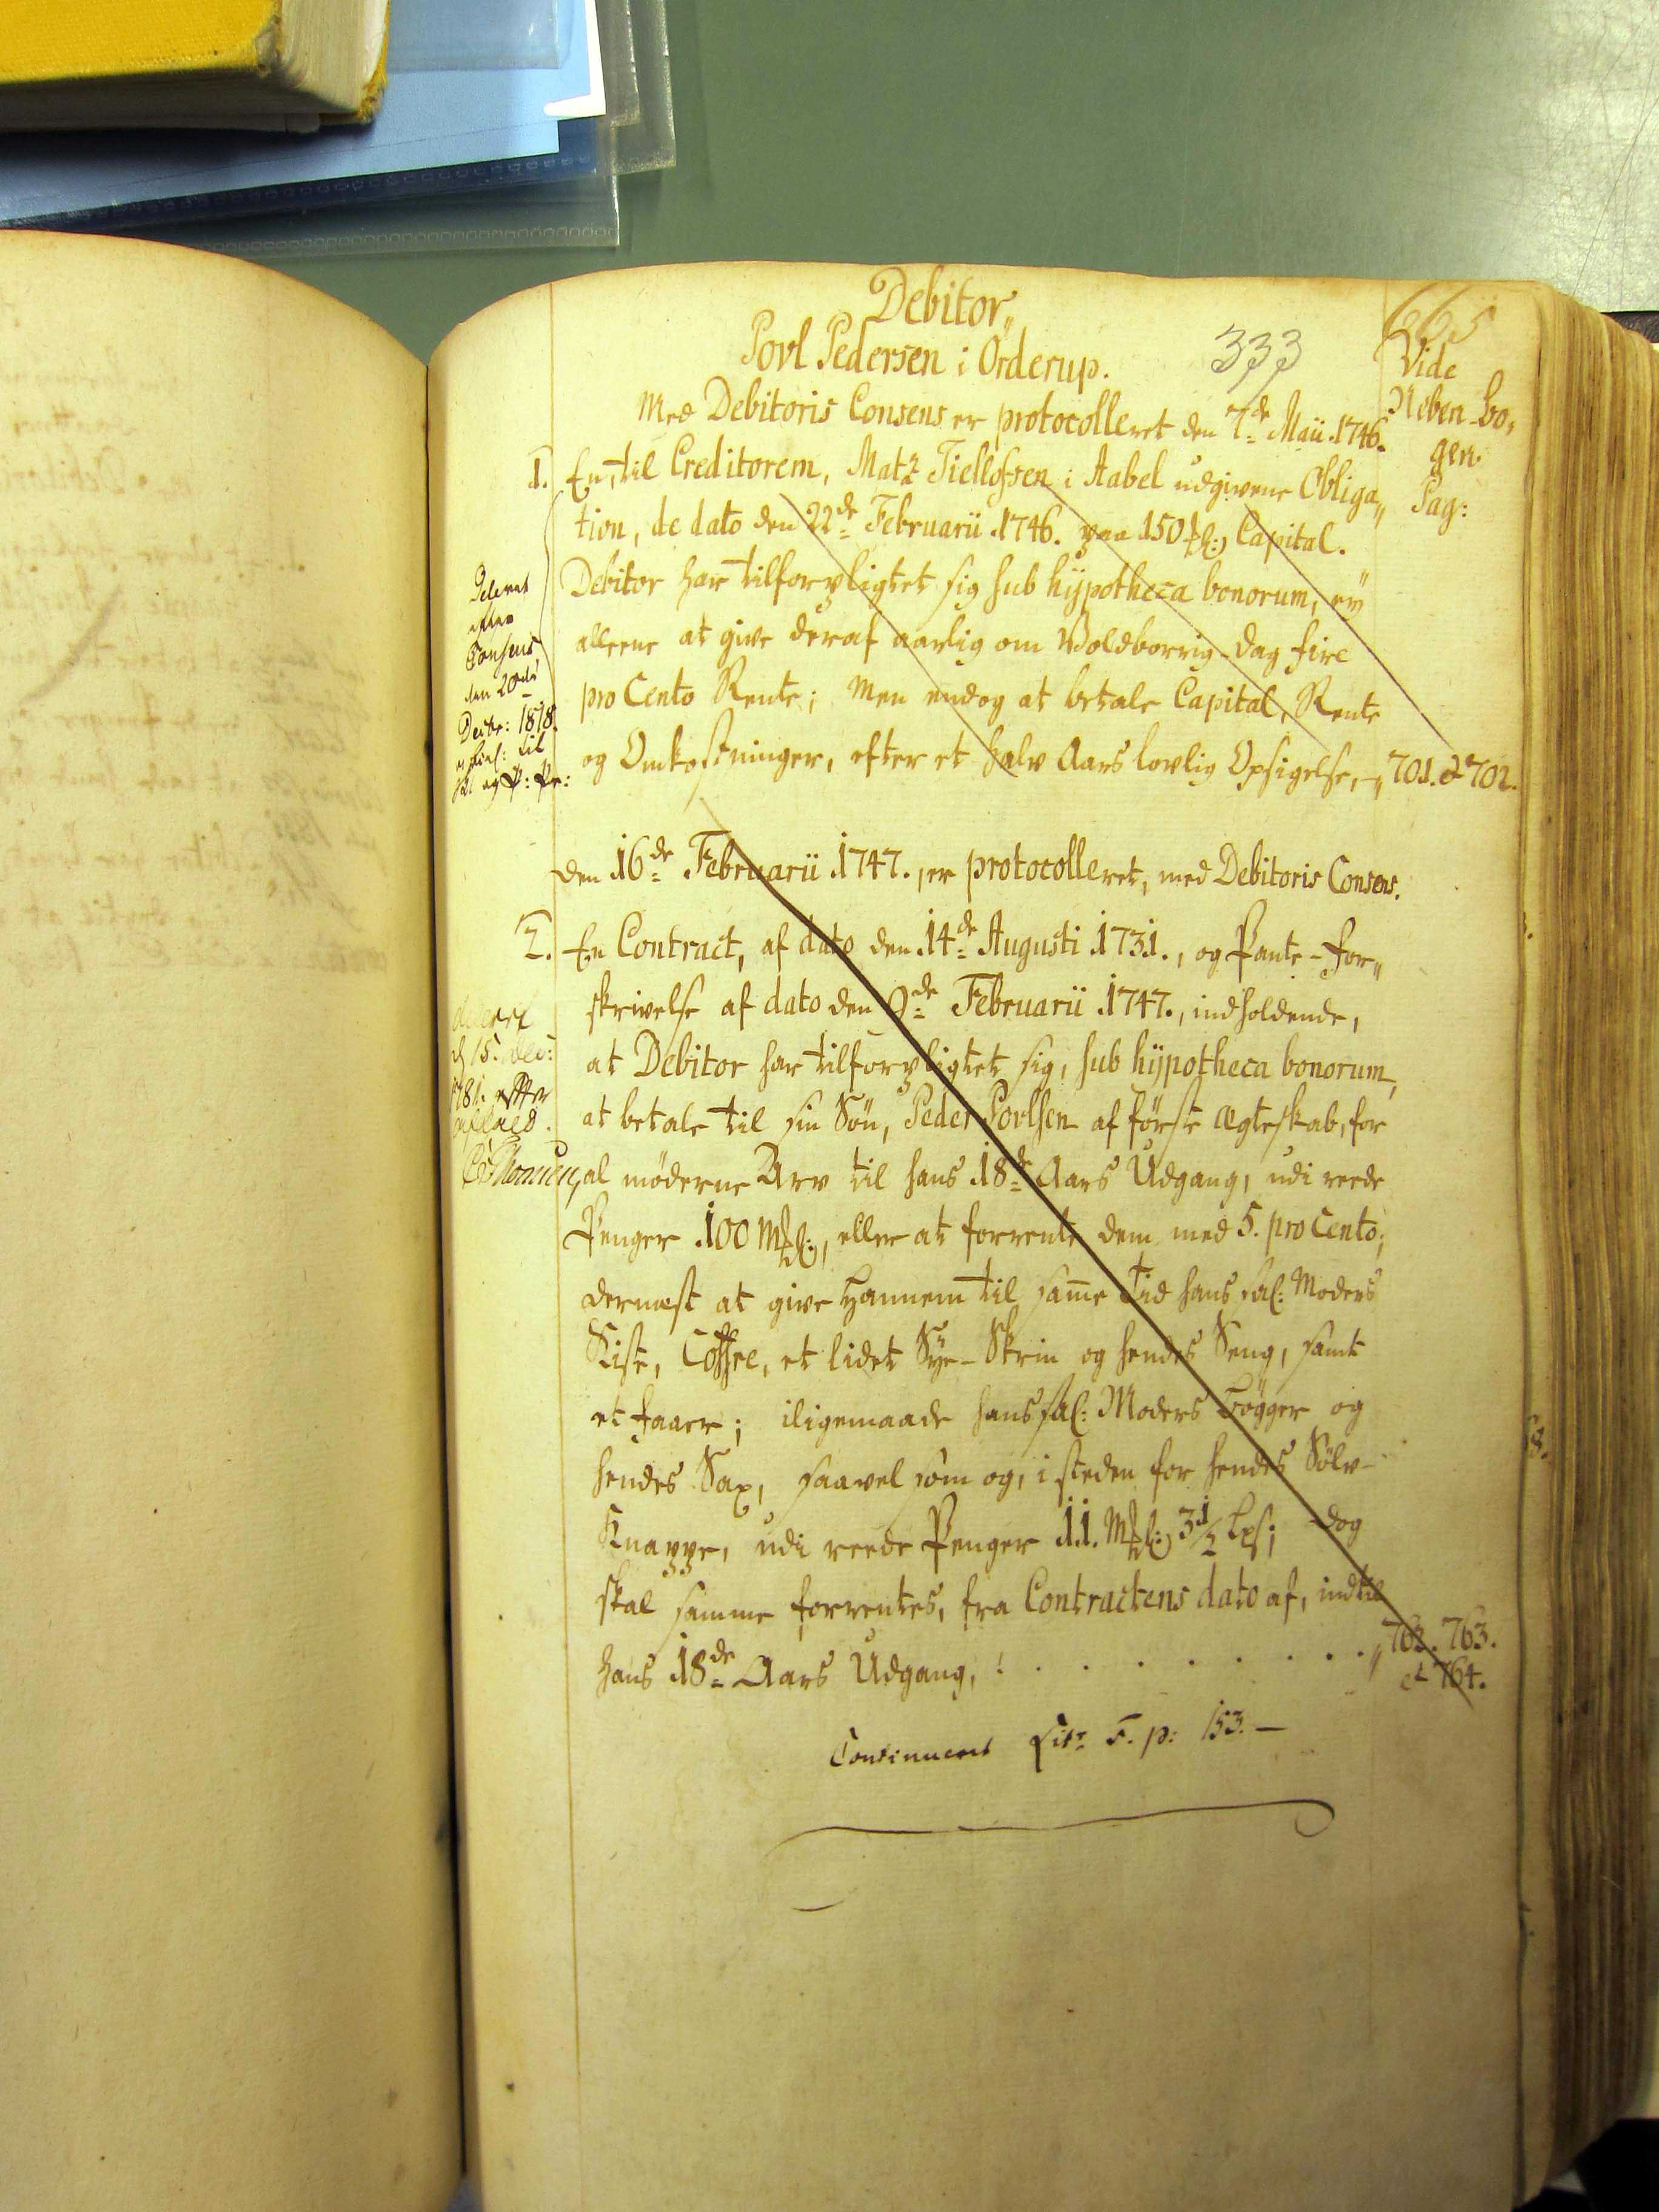 Debitor„
Povl Pedersen i Örderup.
333
665
Vide
Neben-bo„
gen.
Pag:
Med Debitoris Consens er protocolleret den 7de Maii 1746.
1. En, til Creditorem, Matz Tiellofsen i Aabel udgivene Obliga„
tion, de dato den 22de Februarii 1746. paa 150 Capital.
Debitor har tilforpligtet sig sub hÿpotheca bonorum, eÿ
alleene at give deraf aarlig om Woldborrig-Dag fire
pro Cento Rente; Men endog at betale Capital, Rente
og Omkostninger, efter et halv Aars lovlig Opsigelse, „ 701. et 702.
Deleret
efter
Consens
den 20de
Decbr: 1818.
til
og
Den 16de Februarii 1747., er protocolleret, med Debitoris Consens.
2. En Contract, af dato den 14de Augusti 1731., og Pante-for„
skrivelse af dato den 9de Februarii 1747., indholdende,
at Debitor har tilforpligtet sig, sub hÿpotheca bonorum,
at betale til sin Søn, Peder Povlsen af første Ægteskab, for
al møderne Arv til hans 18de Aars Udgang, udi reede
Penger 100 M, eller at forrente dem med 5. pro Cento;
dernæst at give Hannem til same Tid hans sal: Moders
Kiste, Coffre, et lidet Sÿe-Skrin og hendes Seng, samt
et Faar; iligemaade hans sal: Moders Bøgger og
hendes Sax, saavel som og, i steden for hendes Sølv-
Knappe, udi reede Penger 11. M 3 1/2 dog
skal samme forrentes, fra Contractens dato af, indtil
hans 18de Aars Udgang, . . . . . . . . . „ 762. 763.
et 764.
d 15. dec:
1781. efter
Continueret Litr F. p: 153. —